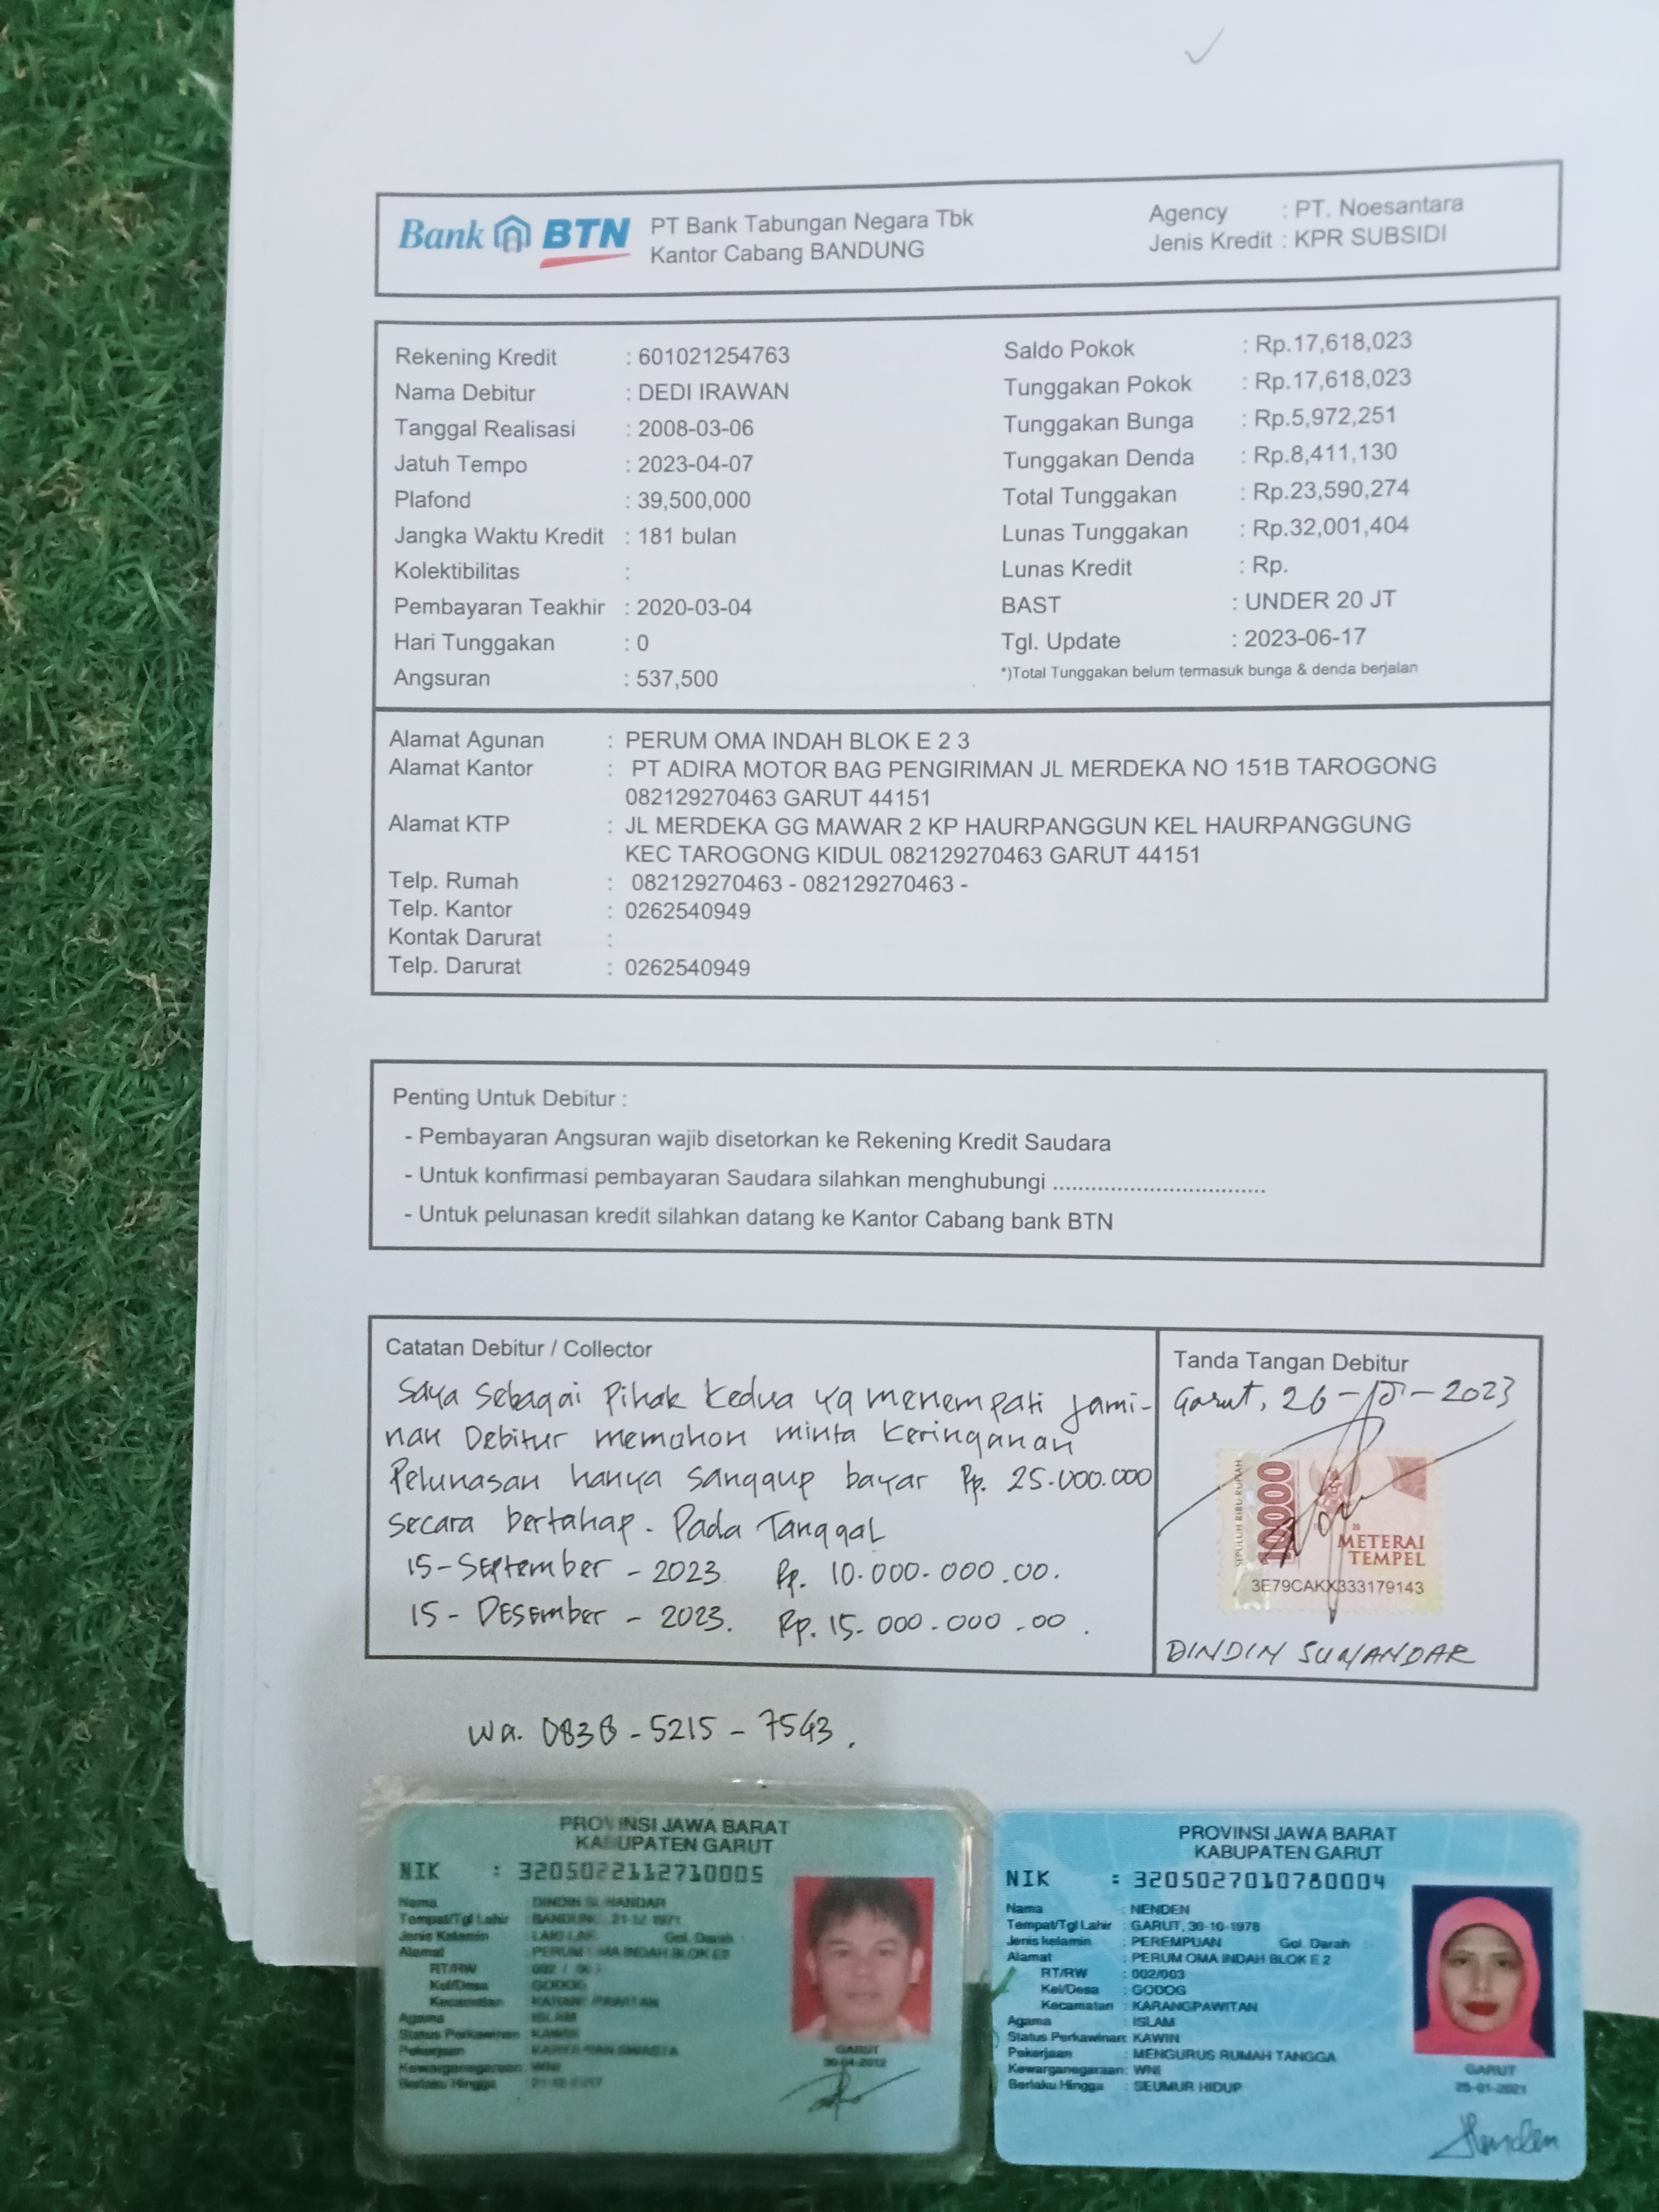 Bank BTN PT Bank Tabungan Negara Tbk
Kantor Cabang BANDUNG
Agency : PT. Noesantara
Jenis Kredit : KPR SUBSIDI
Rekening Kredit : 601021254763
Nama Debitur : DEDI IRAWAN
Tanggal Realisasi : 2008-03-06
Jatuh Tempo : 2023-04-07
Plafond : 39,500,000
Jangka Waktu Kredit : 181 bulan
Kolektibilitas :
Pembayaran Teakhir : 2020-03-04
Hari Tunggakan : 0
Angsuran : 537,500
Saldo Pokok : Rp.17,618,023
Tunggakan Pokok : Rp.17,618,023
Tunggakan Bunga : Rp.5,972,251
Tunggakan Denda : Rp.8,411,130
Total Tunggakan : Rp.23,590,274
Lunas Tunggakan : Rp.32,001,404
Lunas Kredit : Rp.
BAST : UNDER 20 JT
Tgl. Update : 2023-06-17
*)Total Tunggakan belum termasuk bunga & denda berjalan
Alamat Agunan : PERUM OMA INDAH BLOK E 2 3
Alamat Kantor : PT ADIRA MOTOR BAG PENGIRIMAN JL MERDEKA NO 151B TAROGONG
082129270463 GARUT 44151
Alamat KTP : JL MERDEKA GG MAWAR 2 KP HAURPANGGUN KEL HAURPANGGUNG
KEC TAROGONG KIDUL 082129270463 GARUT 44151
Telp. Rumah : 082129270463 - 082129270463 -
Telp. Kantor : 0262540949
Kontak Darurat :
Telp. Darurat : 0262540949
Penting Untuk Debitur :
- Pembayaran Angsuran wajib disetorkan ke Rekening Kredit Saudara
- Untuk konfirmasi pembayaran Saudara silahkan menghubungi .................................
- Untuk pelunasan kredit silahkan datang ke Kantor Cabang bank BTN
Catatan Debitur / Collector
Saya Sebagai Pihak Kedua yg menempati jami-
nan Debitur memohon minta keringanan
Pelunasan hanya sanggup bayar Rp. 25.000.000
secara bertahap. Pada Tanggal
15-September - 2023. Rp. 10.000.000.00.
15 - DESEmber - 2023. Rp. 15.000.000.00.
Tanda Tangan Debitur
Garut, 26 - - 2023
SEPULUH RIBU RUPIAH
10000
METERAI
TEMPEL
3E79CAKX333179143
DINDIN SUNANDAR
wa. 0838 - 5215 - 7543.
PROVINSI JAWA BARAT
KABUPATEN GARUT
NIK : 3205022112710005
Nama : DINDIN
Tempat/Tgl Lahir : BANDUNG, 21-12-1971
Jenis Kelamin : LAKI-LAKI Gol. Darah :
Alamat : PERUM OMA INDAH BLOK E2
RT/RW : 002 /
Kel/Desa : GODOG
Kecamatan : KARANGPAWITAN
Agama : ISLAM
Status Perkawinan: KAWIN
Pekerjaan : KARYAWAN SWASTA
Kewarganegaraan: WNI
Berlaku Hingga :
GARUT
30-04-2012
PROVINSI JAWA BARAT
KABUPATEN GARUT
NIK : 3205027010780004
Nama : NENDEN
Tempat/Tgl Lahir : GARUT, 30-10-1978
Jenis kelamin : PEREMPUAN Gol. Darah : -
Alamat : PERUM OMA INDAH BLOK E 2
RT/RW : 002/003
Kel/Desa : GODOG
Kecamatan : KARANGPAWITAN
Agama : ISLAM
Status Perkawinan: KAWIN
Pekerjaan : MENGURUS RUMAH TANGGA
Kewarganegaraan: WNI
Berlaku Hingga : SEUMUR HIDUP
GARUT
25-01-2021
Nenden